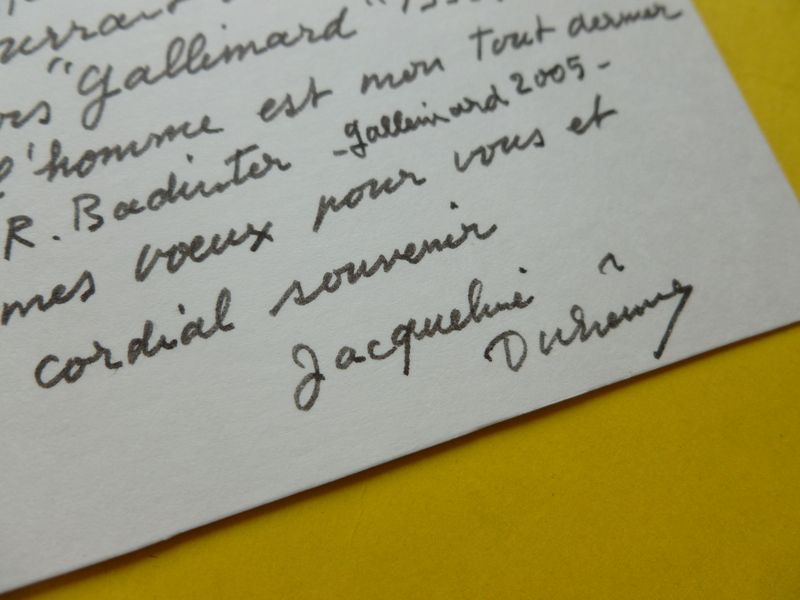 "Gallimard"
l'homme est mon tout dernier
R. Badinter - Gallimard 2005 -
mes voeux pour vous et
cordial souvenir
Jacqueline
Duhême